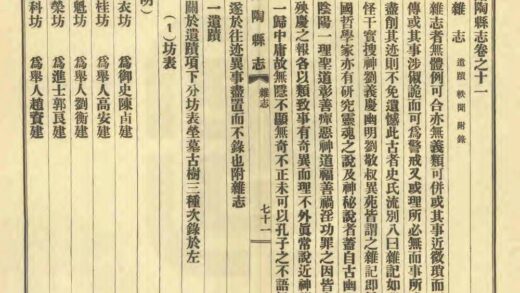 陶縣志卷之十一
雜志 遺蹟 軼聞 附錄
雜志者無體例可合亦無義類可併或其事近微瑣而
傳或其事涉詭而可爲警戒又或理所必無而事所
盡削其迹則不免遺憾此古者史氏流別八曰雜記如
怪干寶搜神劉義慶幽明劉敬叔異苑皆謂之雜記即
國哲學家亦有研究靈魂之說及神秘說者蓋自古幽
陰陽一理聖道彰善癉惡神道福善禍淫功罪之因皆
殃慶之報各以類致事有奇異而理不外眞常說近神
一歸中庸故無隱不顯無奇不正未可以孔子之不語
陶縣志 雜志 七十一
遂於往迹異事盡置而不錄也附雜志
一遺蹟
關於遺蹟項下分坊表塋墓古樹三種次錄於左
(1)坊表
明)
衣坊 爲御史陳建
桂坊 爲舉人高安建
魁坊 爲舉人劉衡建
榮坊 爲進士郭良建
科坊 爲舉人趙資建